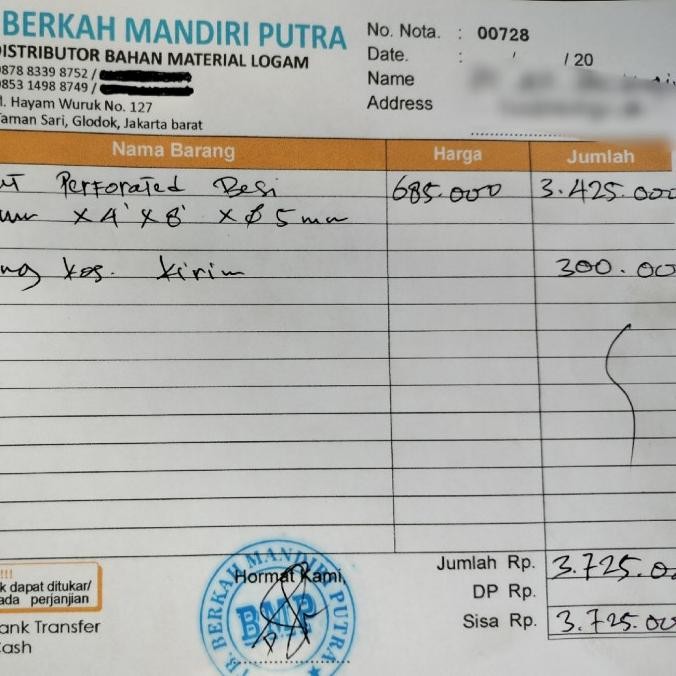 BERKAH MANDIRI PUTRA
DISTRIBUTOR BAHAN MATERIAL LOGAM
0878 8339 8752 /
0853 1498 8749 /
Jl. Hayam Wuruk No. 127
Taman Sari, Glodok, Jakarta barat
No. Nota. : 00728
Date. : / / 20
Name
Address
Nama Barang Harga Jumlah
Perforated Besi 685.000 3.425.000
x 4' x 8' x Ø 5 mm
kos. kirim 300.000
!!!
k dapat ditukar/
ada perjanjian
Bank Transfer
Cash
Hormat Kami,
TB. BERKAH MANDIRI PUTRA
BMP
Jumlah Rp. 3.725.000
DP Rp.
Sisa Rp. 3.725.000